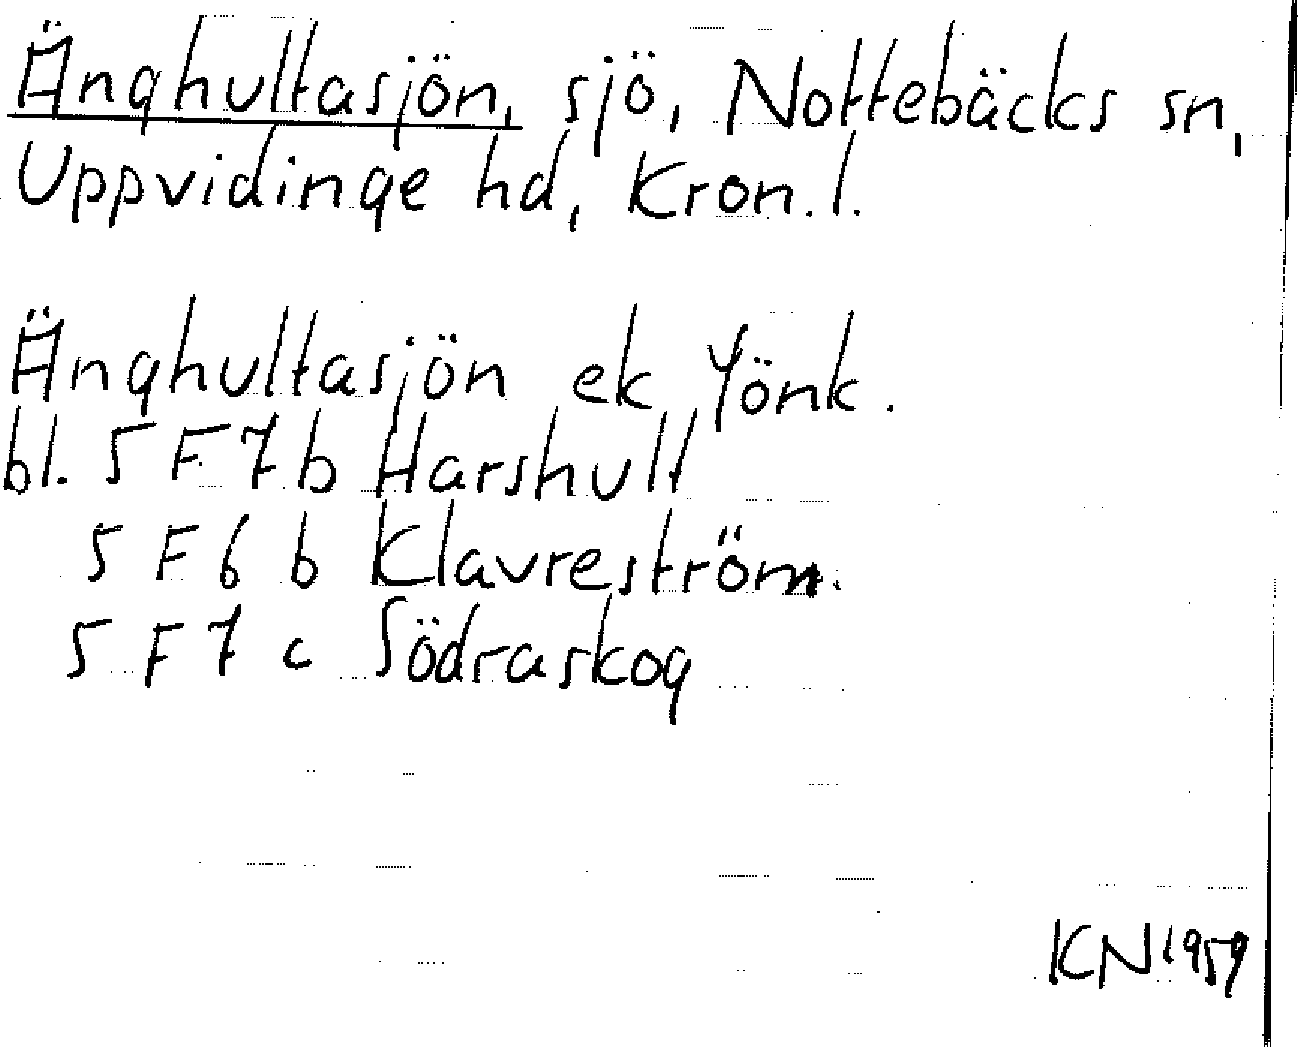 Änghultasjön, sjö, Nottebäcks sn,
Uppvidinge hd, Kron. l.
Änghultasjön ek Jönk.
bl. 5 F 7 b Harshult
5 F 6 b Klavreström.
5 F 7 c Södraskog
KN 1959